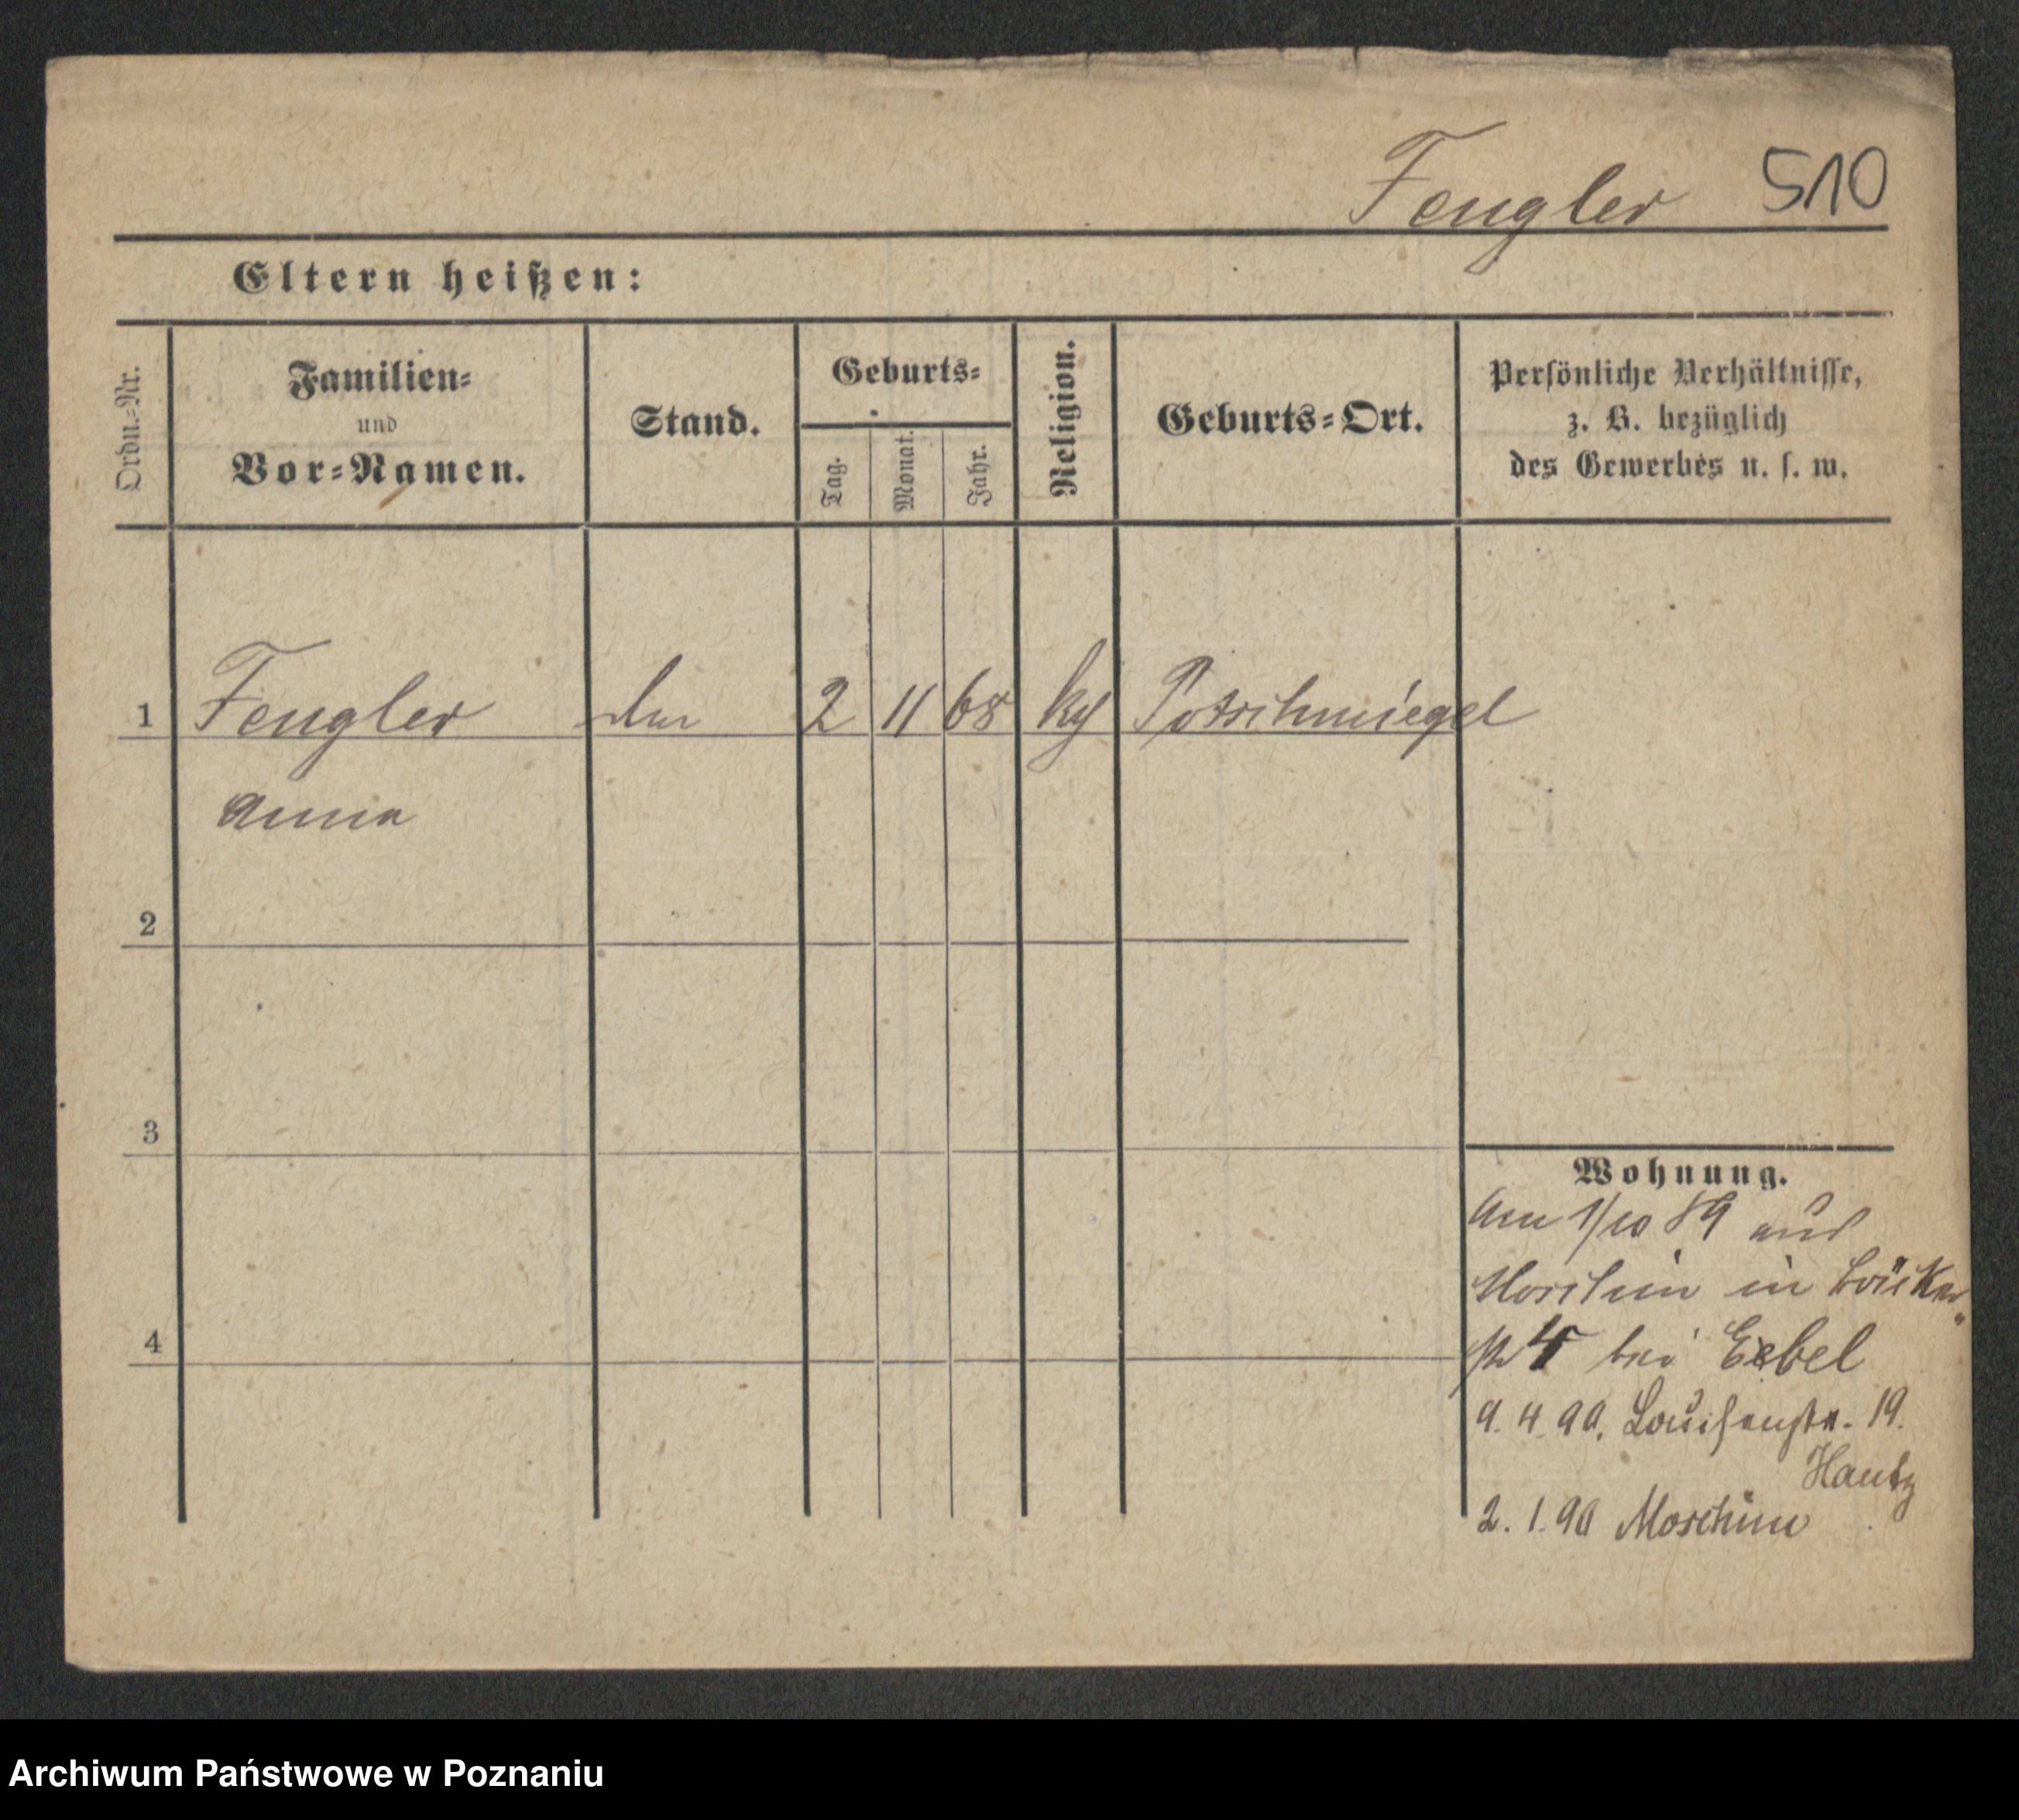 Fengler 510
Eltern heißen:
Ordn.=Nr.
Familien=
und
Vor=Namen.
Stand.
Geburts=
Tag.
Monat.
Jahr.
Religion.
Geburts=Ort.
Persönliche Verhältnisse,
z. B. bezüglich
des Gewerbes u. s. w.
1 Fengler 2 11 68 Potschmiegel
Anna
2
3
4
Wohnung.
Am 1/10 89 aus
Moschin in
4 bei Eebel
9. 4. 90. Louisenstr. 19.
Hantz
2. 1. 90 Moschin
Archiwum Państwowe w Poznaniu